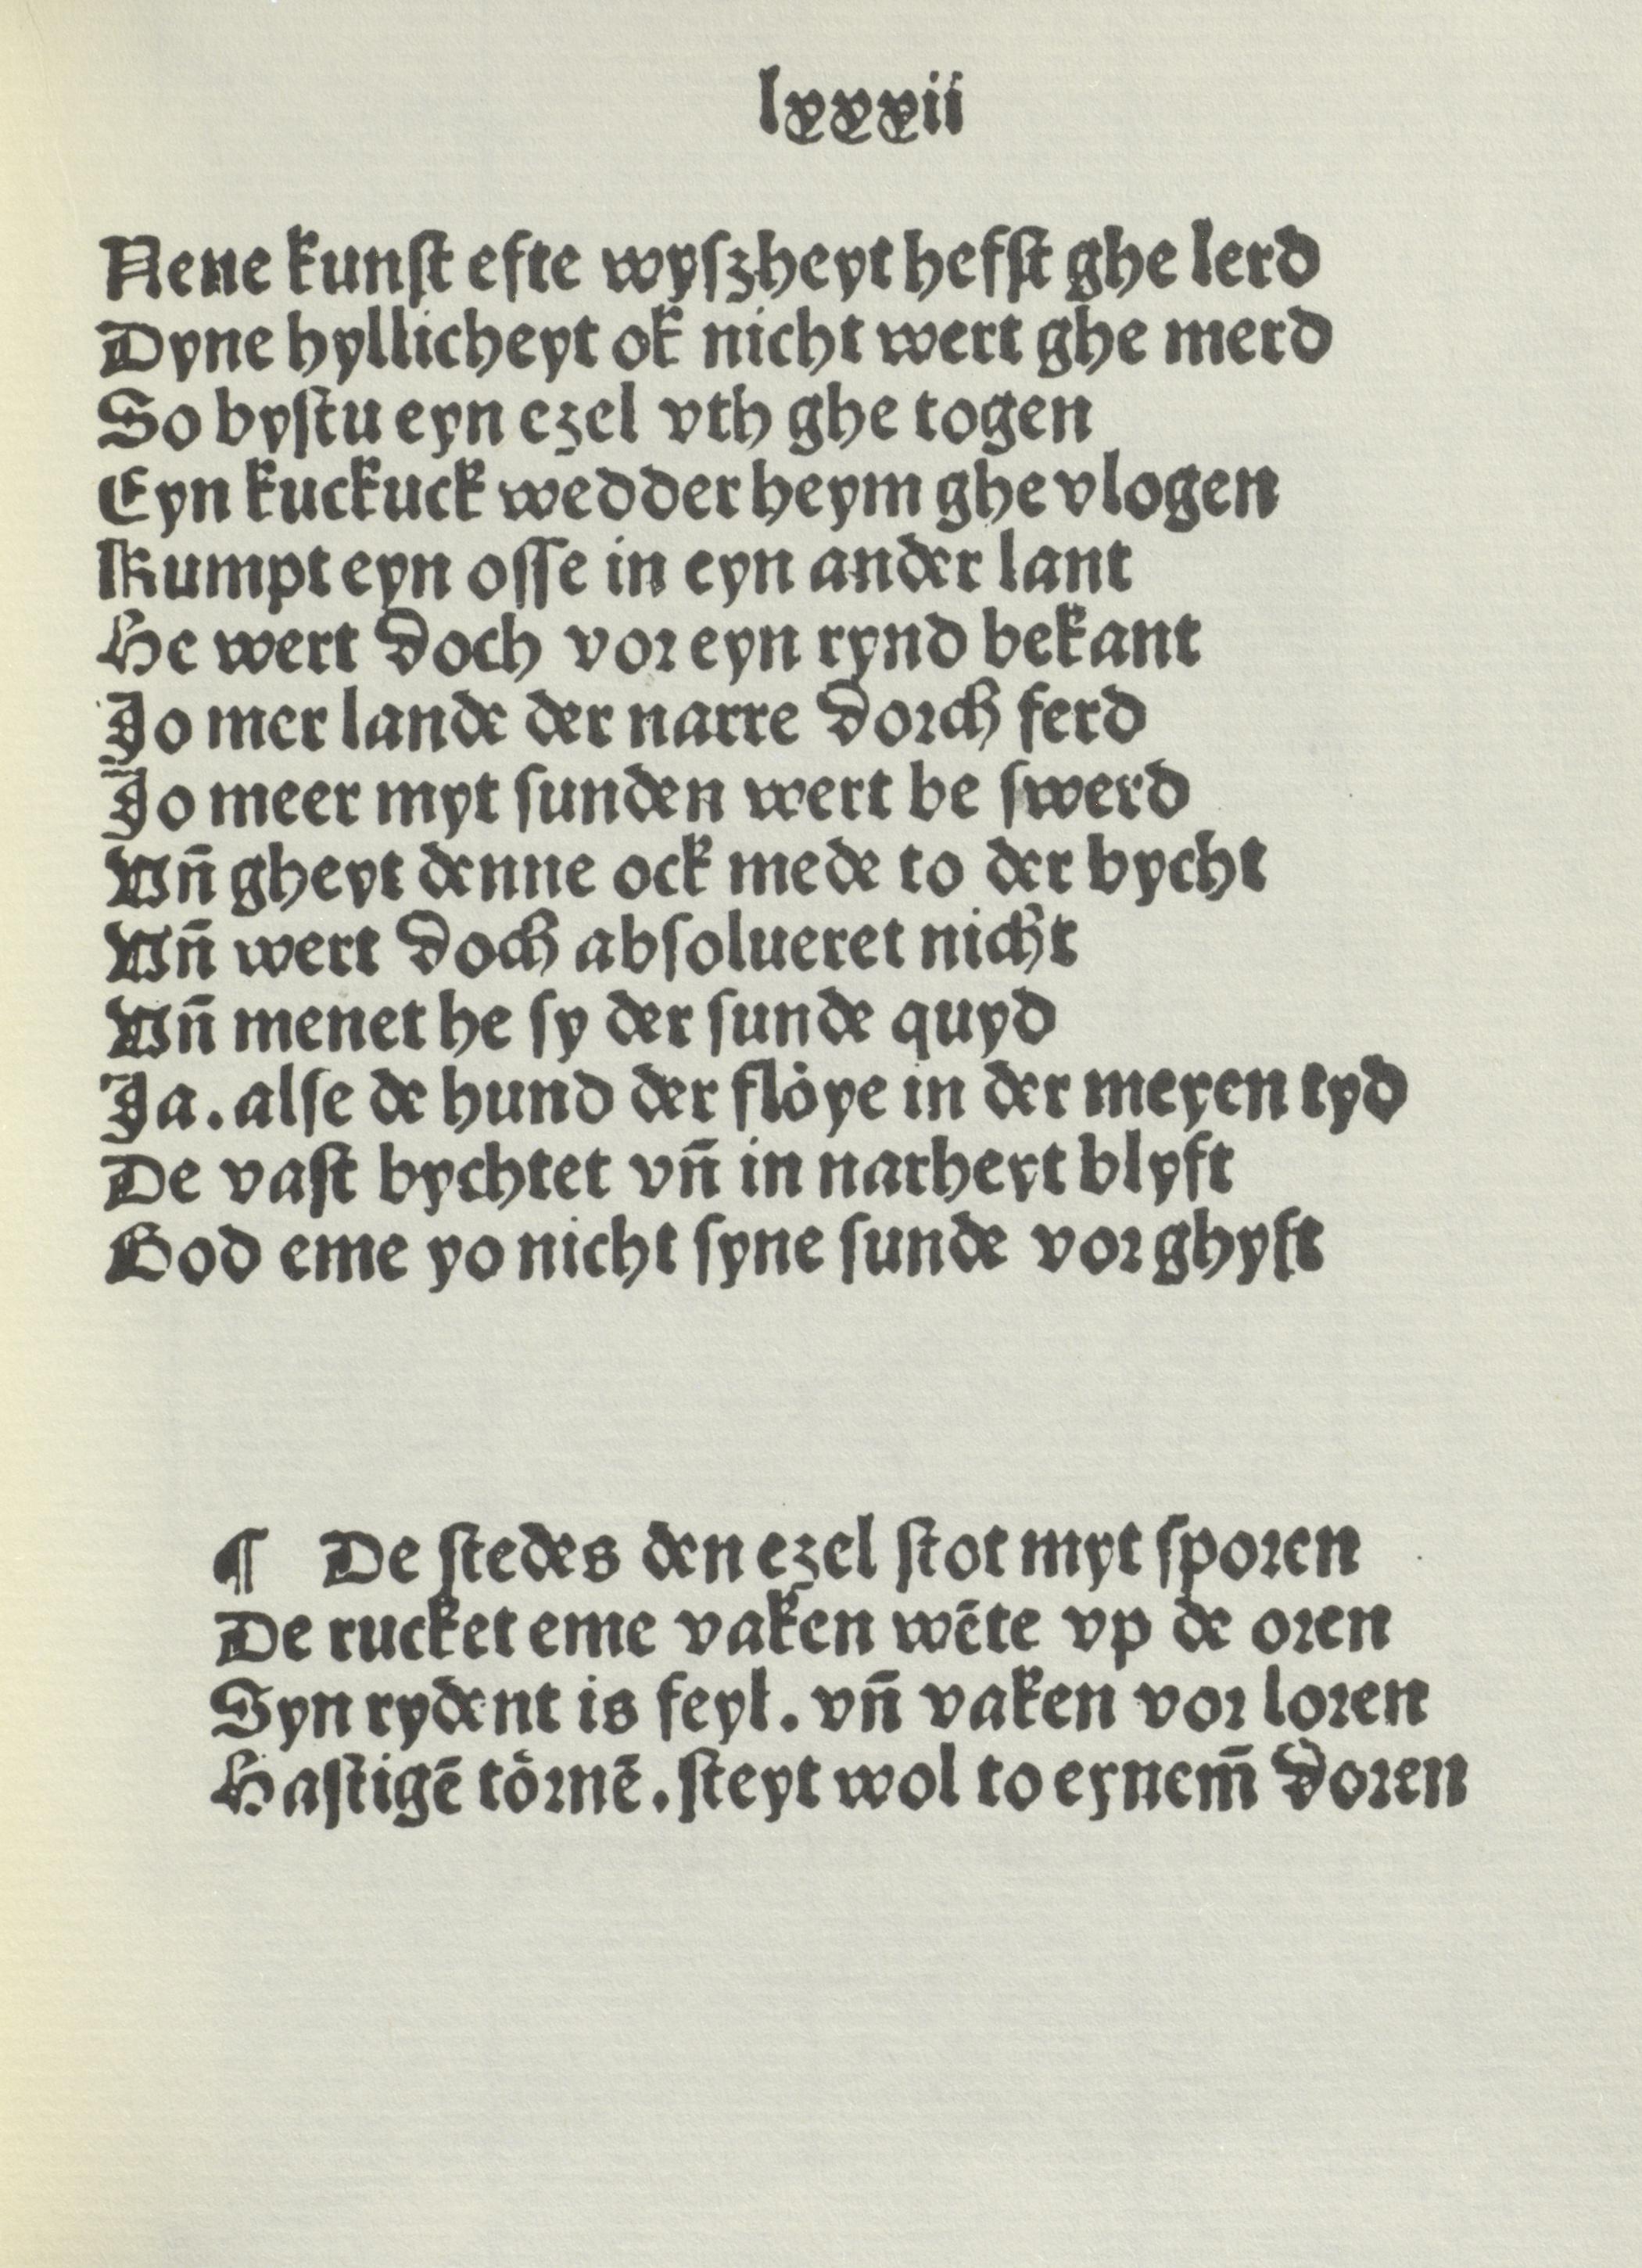 lxxxii
Nene kunſt efte wyſzheyt hefſt ghe lerd
Dyne hyllicheyt ok nicht wert ghe merd
So byſtu eyn ezel vth ghe togen
Eyn kuckuck wedder heym ghe vlogen
Kumpt eyn oſſe in eyn ander lant
He wert doch voꝛ eyn rynd bekant
Jo mer lande der narre doꝛch ferd
Jo meer myt ſunden wert be ſwerd
Vn̄ gheyt denne ock mede to der bycht
Vn̄ wert doch abſolueret nicht
Vn̄ menet he ſy der ſunde quyd
Ja. alſe de hund der flȯye in der meyen tyd
De vaſt bychtet vn̄ in narheyt blyft
God eme yo nicht ſyne ſunde voꝛ ghyft
¶ De ſtedes den ezel ſtot myt ſpoꝛen
De rucket eme vaken wēte vp de oꝛen
Syn rydent is feyl. vn̄ vaken voꝛ loꝛen
Haſtigē töꝛnē. ſteyt wol to eynem̄ doꝛen